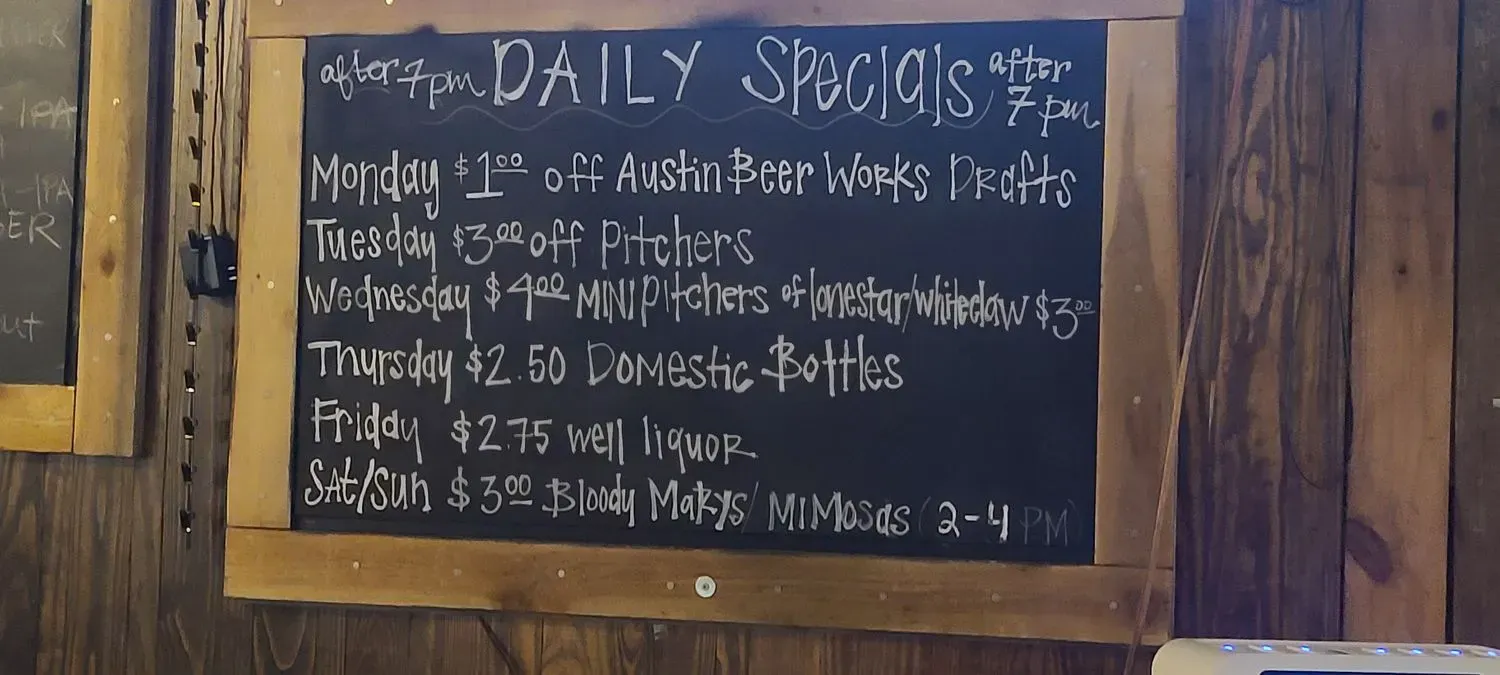 after 7pm DAILY Specials after 7pm
Monday $1.00 off Austin Beer Works Drafts
Tuesday $3.00 off Pitchers
Wednesday $4.00 MINI Pitchers of lonestar/whiteclaw $3.00
Thursday $2.50 Domestic Bottles
Friday $2.75 well liquor
Sat/Sun $3.00 Bloody Marys/ MIMosas (2-4 PM)
IPA
-IPA
ER